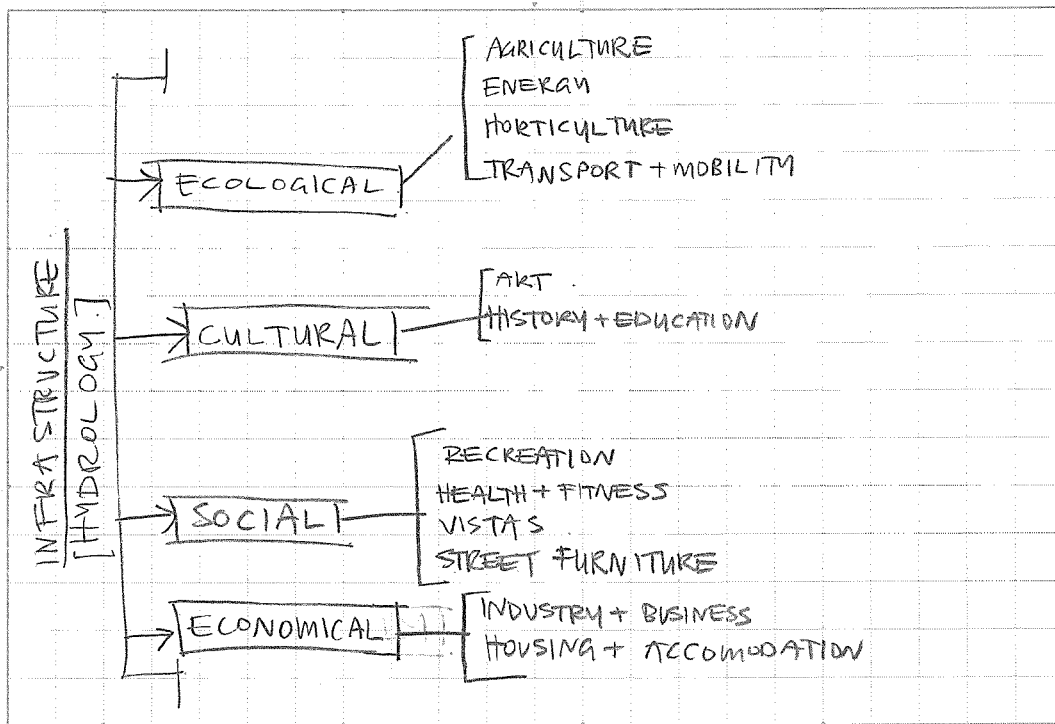 INFRASTRUCTURE
[HYDROLOGY.]
ECOLOGICAL
AGRICULTURE
ENERGY
HORTICULTURE
TRANSPORT + MOBILITY
CULTURAL
ART.
HISTORY + EDUCATION
SOCIAL
RECREATION
HEALTH + FITNESS
VISTAS
STREET FURNITURE
ECONOMICAL
INDUSTRY + BUSINESS
HOUSING + ACCOMODATION